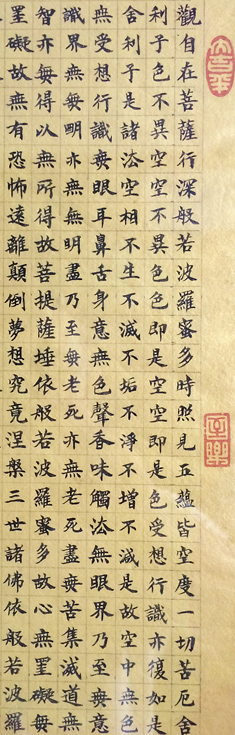 觀自在菩薩行深般若波羅蜜多時照見五蘊皆空度一切苦厄舍
利子色不異空空不異色色即是空空即是色受想行識亦復如是
舍利子是諸法空相不生不滅不垢不淨不增不減是故空中無色
無受想行識無眼耳鼻舌身意無色聲香味觸法無眼界乃至無意
識界無無明亦無無明盡乃至無老死亦無老死盡無苦集滅道無
智亦無得以無所得故菩提薩埵依般若波羅蜜多故心無罣礙無
罣礙故無有恐怖遠離顛倒夢想究竟涅槃三世諸佛依般若波羅